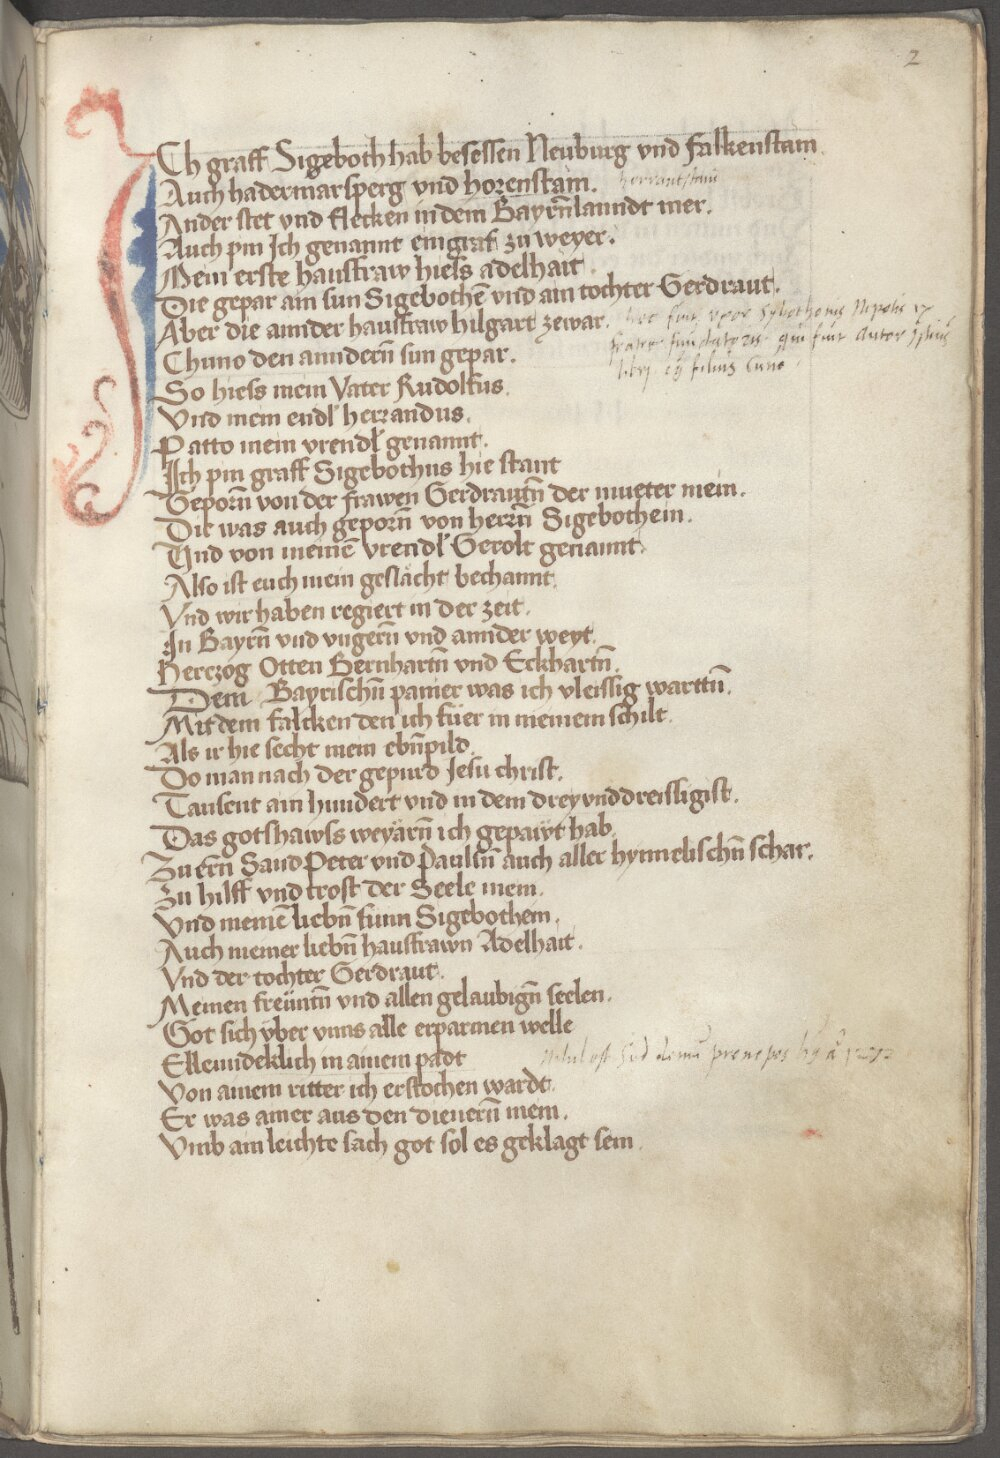 2
ICh graff Sigeboth hab besessen Neuburg vnd falkenstain
Auch hadermarsperg vnd horenstain. herrantstain
Ander stet vnd flecken in dem Bayrn̄lanndt mer.
Auch pin Ich genannt ein graf zu weyer.
Mein erste hausfraw hiess adelhait.
Die gepar ain sun Sigebothē vnd ain tochter Gerdraut.
Aber die annder hausfraw hilgart zewar.
Chuno den anndern̄ sun gepar.
fuit vxor Sybothonis Nepotis
frater fundatoris qui fuit Autor Istius
libri filius Cuno
So hiess mein Vater Rudolfus.
Vnd mein endl herrandus.
Patto mein vrendl genannt.
Ich pin graff Sigebothus hie stant
Geporn̄ von der frawen Gerdrautn̄ der mueter mein.
Die was auch geporn̄ von herrn̄ Sigebothein.
Vnd von meinē vrendl Gerolt genannt.
Also ist euch mein geslächt bechannt.
Vnd wir haben regiert in der zeit.
In Bayrn̄ vnd vngern̄ vnd annder weyt.
Herczog Otten Bernhartn̄ vnd Eckhartn̄.
Dem Bayrischn̄ panier was ich vleissig warttn̄.
Mit dem falcken den ich füer in meinem schilt.
Als ir hie secht mein ebn̄pild.
Do man nach der gepurd Jesu christ.
Tausent ain hundert vnd in dem drey vnd dreissigist.
Das gotshawss weyärn̄ ich gepaüt hab.
Zu ern̄ Sand Peter vnd Paulsn̄ auch aller hymelischn̄ schar.
Zu hilff vnd trost der Seele mein.
Vnd meinē liebn̄ sunn Sigebothein.
Auch meiner liebn̄ hausfrawn Adelhait.
Vnd der tochter Gerdraut.
Meinen freüntn̄ vnd allen gelaubign̄ seelen.
Got sich über vnns alle erparmen welle
Ellenndeklich in ainem padt
Von ainem ritter ich erstochen wardt.
Er was ainer aus den dienern̄ mein.
Vmb ain leichte sach got sol es geklagt sein.